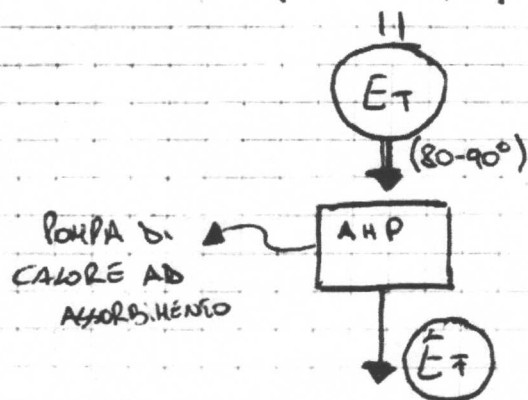 ET
(80-90°)
AHP
POMPA DI
CALORE AD
ASSORBIMENTO
ET